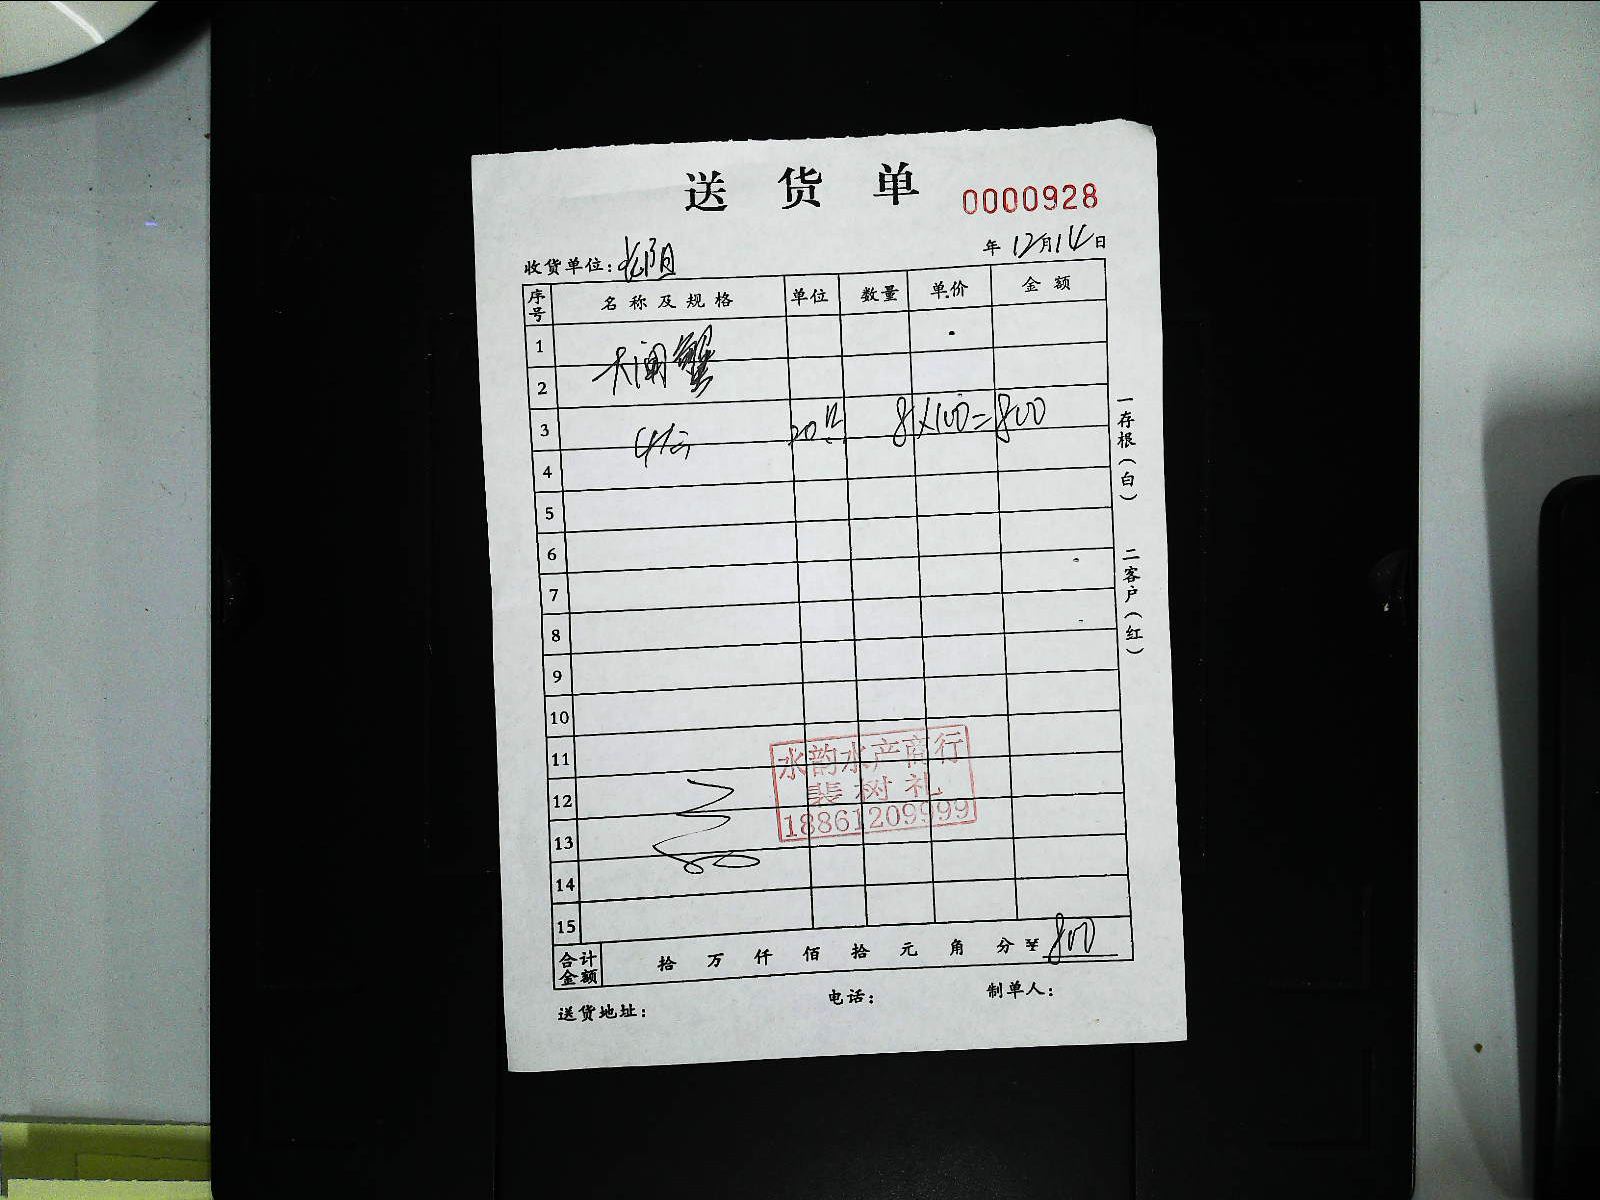 送货单 0000928
收货单位: 年12月14日
序号 名称及规格 单位 数量 单价 金额
1
大闸蟹
2
3 4两 20只 8×100=800
4
5
6
7
8
9
10
11
12
13
14
15
水韵水产商行
裴树礼
18861209999
合计金额 拾 万 仟 佰 拾 元 角 分 ¥ 800
送货地址: 电话: 制单人:
一存根(白) 二客户(红)